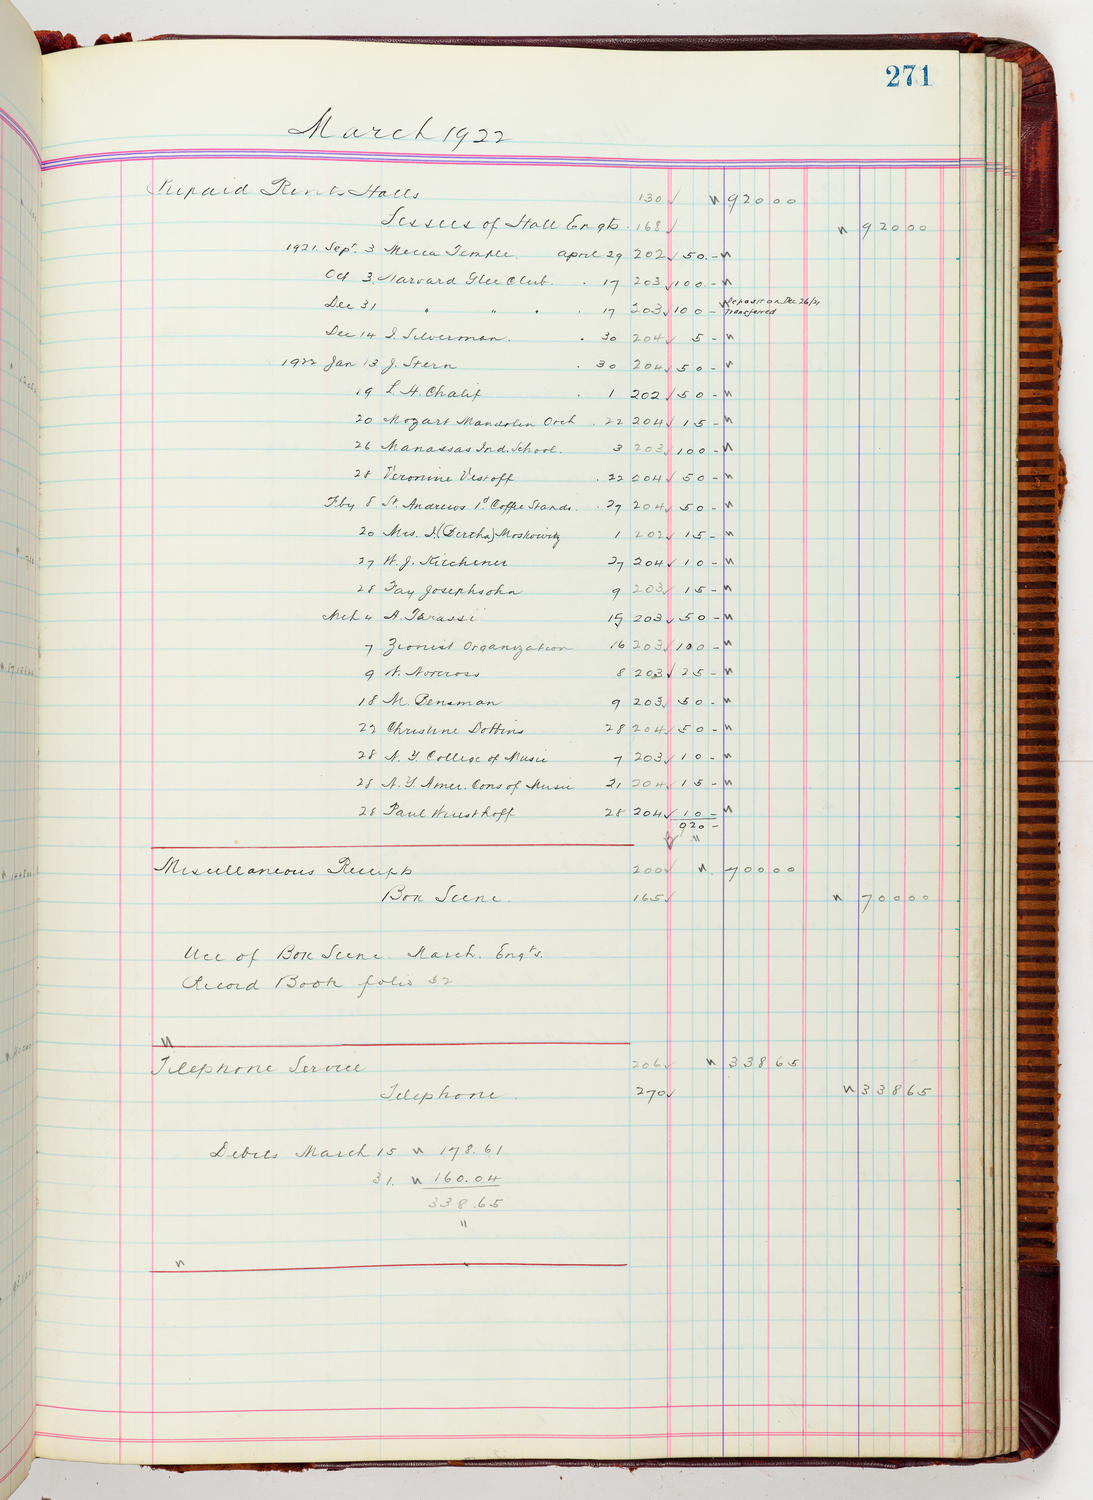 271
March 1922
Prepaid Rents Halls 130 ✓ 920 00
Lessees of Hall Engts. 168 ✓ 920 00
1921. Sept. 3 Mecca Temple. April 29 202 ✓ 50. -
Oct 3 Harvard Glee Club. . 17 203 ✓ 100 -
Dec 31 " " " . 17 203 ✓ 100 - Deposit on Dec 26/21 transferred
Dec 14 I. Silverman. . 30 204 ✓ 5 -
1922 Jan 13 J. Stern . 30 204 ✓ 50 -
19 L. H. Chalif . 1 202 ✓ 50 -
20 Mozart Mandolin Orch . 22 204 ✓ 15 -
26 Manassas Ind. School. 3 203 ✓ 100 -
28 Veronine Vestoff . 22 204 ✓ 50 -
Fby 8 St. Andrews 1d Coffee Stands. . 27 204 ✓ 50 -
20 Mrs. I. (Bertha) Moskowitz 1 202 ✓ 15 -
27 W. J. Kirchener 27 204 ✓ 10 -
28 Fay Josephsohn 9 203 ✓ 15 -
Mch 4 A. Tarassi 15 203 ✓ 50 -
7 Zionist Organization 16 203 ✓ 100 -
9 N. Norcross 8 203 ✓ 25 -
18 M. Bensman 9 203 ✓ 50 -
22 Christine Dottins 28 204 ✓ 50 -
28 N. Y. College of Music 7 203 ✓ 10 -
28 N. Y. Amer. Cons of Music 21 204 ✓ 15 -
28 Paul Wiusthoff 28 204 ✓ 10 -
920 -
"
Miscellaneous Receipts 200 ✓ 700 00
Box Scene. 165 ✓ 700 00
Use of Box Scene. March. Engts.
Record Book folio 32
Telephone Service 206 ✓ 338 65
Telephone. 270 ✓ 338 65
Debits March 15 178.61
31. 160.04
338.65
"